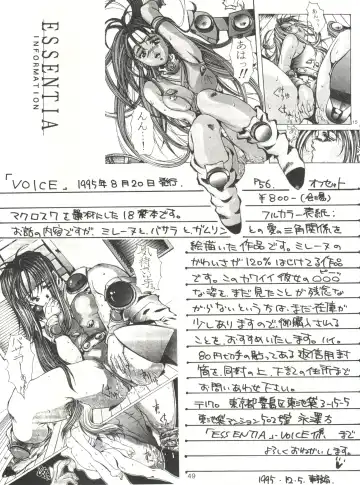 ESSENTIA
INFORMATION
あはっ!!
んん…!
「VOICE」 1995年8月20日発行。
P56. オフセット
¥800-(会場)
フルカラー表紙。
マクロス7を題材にした18禁本です。
お話の内容ですが、ミレーヌと、バサラとガムリンとの愛の三角関係を
絵描いた作品です。ミレーヌの
かわいさが120%はじける作品
です。このカワイイ彼女の○○○
な姿を、まだ見たことが残念な
がらないという方は、まだ在庫が
少しありますので、御購入される
ことを、おすすめいたします。ハイ。
80円切手の貼ってある返信用封
筒を同封の上、下記の住所まで
お問いあわせ下さい。
〒170 東京都豊島区東池袋2-15-5
東池袋マンション502号 永澤方
「ESSENTIA」・VOICE係 まで
よろしくおねがいします。
49
1995.12.5.